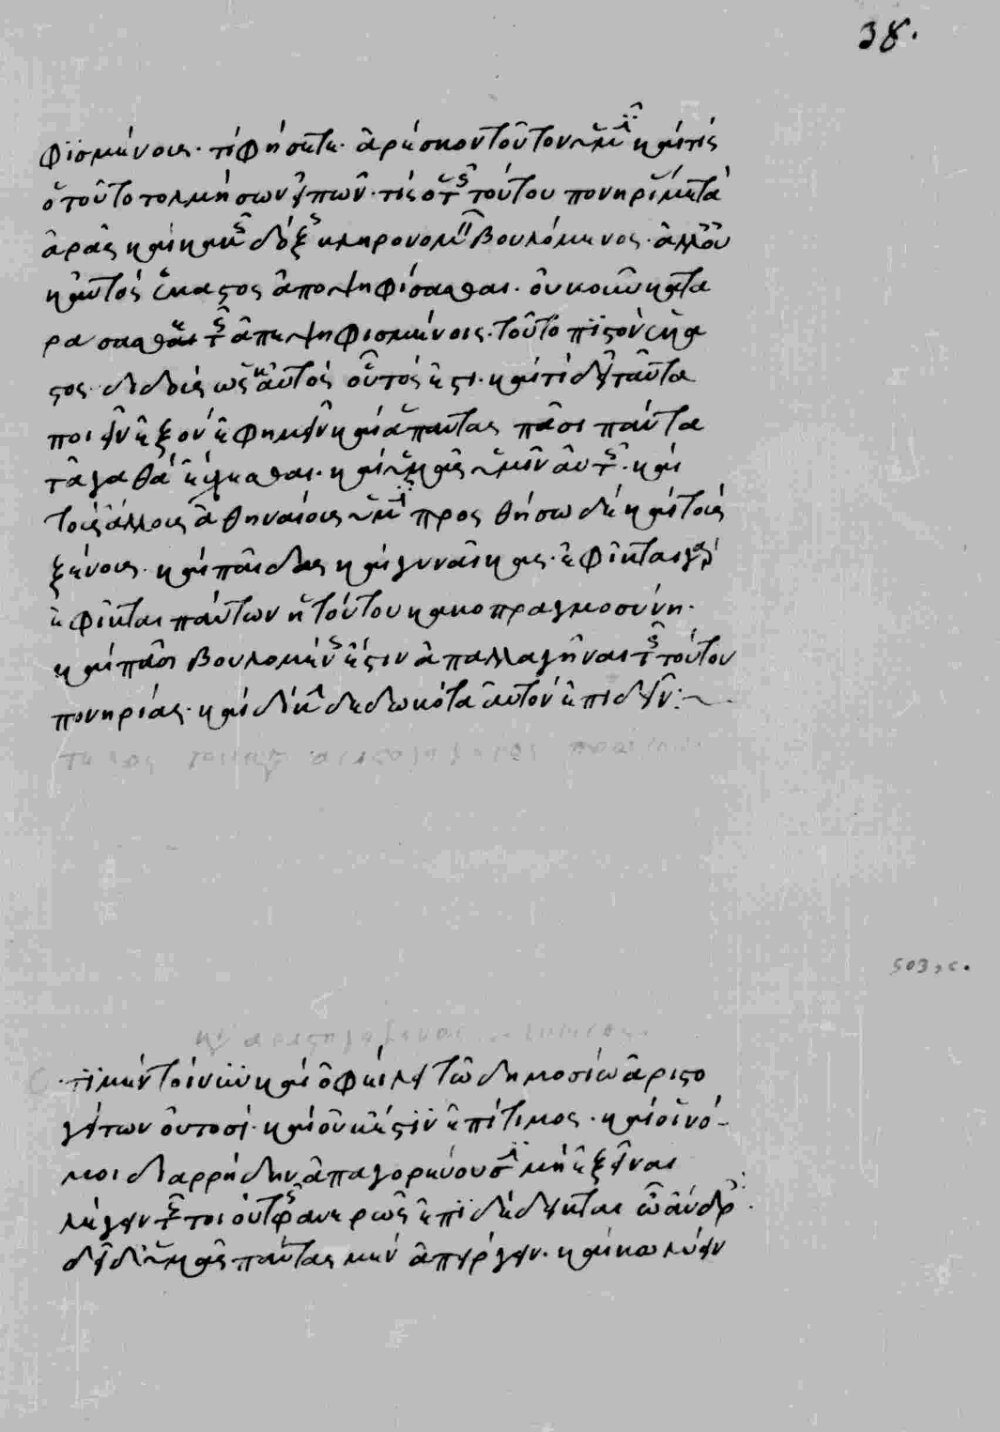 38.
φισμένοις· τί φήσετε· ἀρέσκον τοῦτον ὑμῖν καὶ τίς
ὁ τοῦτο τολμήσων εἰπεῖν· τίς ὁ τῆς τούτου πονηρίας μετὰ
ἀρᾶς καὶ κακῆς δόξης κληρονομεῖν βουλόμενος· ἀλλ' οὐ
κατ' αὐτὸς ἕκαστος ἀποψηφίσασθαι· οὐκοῦν κατα
ράσασθαι τοῖς ἀπεψηφισμένοις· τοῦτο πίστον ἕκα
στος διδοὺς ὡς αὐτὸς οὗτός ἐστι· καὶ τί δεῖ ταῦτα
ποιεῖν ἐξὸν εὐφημεῖν καὶ ἅπαντας πᾶσι πάντα
τἀγαθὰ εὔχεσθαι· καὶ ὑμᾶς ὑμῖν αὐτοῖς· καὶ
τοὺς ἄλλους ἀθηναίους ὑμῖν προσθήσω δὲ καὶ τοὺς
ξένους· καὶ παῖδας καὶ γυναῖκας· ἐφῖκται γὰρ
ἐφῖκται πάντων ἡ τούτου κακοπραγμοσύνη·
καὶ πᾶσι βουλομένοις ἐστὶν ἀπαλλαγῆναι τῆς τούτου
πονηρίας· καὶ δίκην δεδωκότα αὐτὸν ἐπιδεῖν:~
503, c.
τὸ μὲν τοίνυν καὶ ὀφείλειν τῶ δημοσίω ἀριστο
γείτων οὑτοσί· καὶ οὐκ ἐστὶν ἐπίτιμος· καὶ οἱ νό-
μοι διαρρήδην ἀπαγορεύουσι μὴ ἐξεῖναι
λέγειν τοῖς τοιούτοις φανερῶς ἐπιδέδεικται ὦ ἄνδρες
δεῖ δὲ ὑμᾶς πάντας μὲν ἀπείργειν· καὶ κωλύειν